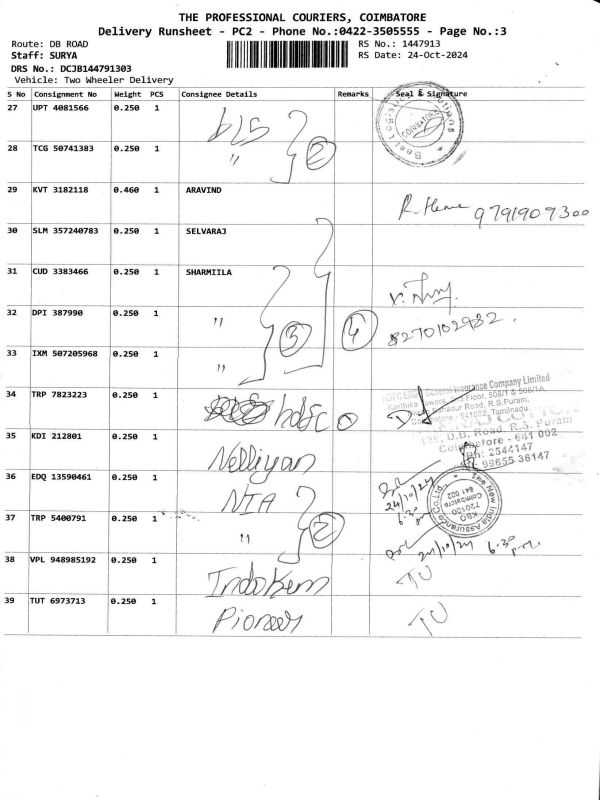 THE PROFESSIONAL COURIERS, COIMBATORE
Delivery Runsheet - PC2 - Phone No.:0422-3505555 - Page No.:3
Route: DB ROAD
RS No.: 1447913
Staff: SURYA
RS Date: 24-Oct-2024
DRS No.: DCJB144791303
Vehicle: Two Wheeler Delivery
S No Consignment No Weight PCS Consignee Details Remarks Seal & Signature
27 UPT 4081566 0.250 1
28 TCG 50741383 0.250 1 " 2
29 KVT 3182118 0.460 1 ARAVIND
9791909300
30 SLM 357240783 0.250 1 SELVARAJ
31 CUD 3383466 0.250 1 SHARMIILA
32 DPI 387990 0.250 1 " 3 4
8270102982.
33 IXM 507205968 0.250 1 "
General Insurance Company Limited
34 TRP 7823223 0.250 1 hdfc
R.S.Puram,
641002, Tamilnadu
129, D.B. Road, R.S. Puram
35 KDI 212801 0.250 1 Nelliyan
Coimbatore - 641 002
Ph: 2544147
99655 36147
36 EDQ 13590461 0.250 1 NIA
24/10/24
6.30 pm
The New India Assurance Co.Ltd.,
KBO
720100
Coimbatore
641 002
37 TRP 5400791 0.250 1 " 2
24/10/24 6.30 p.m.
38 VPL 948985192 0.250 1 IndoKem
39 TUT 6973713 0.250 1 Pioneer